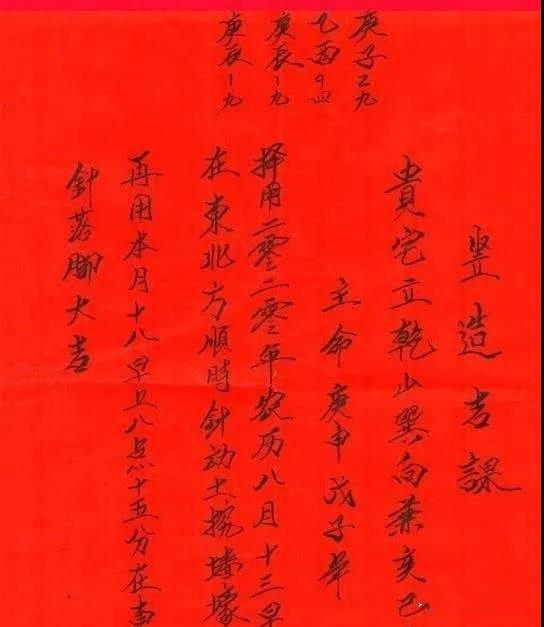 豎造吉課
貴宅立乾山巽向兼亥巳
主命庚申戊子年
择用二零二零年农历八月十三早
在東北方順時針动土挖墻壕
再用本月十八早上八点十五分在南
針落脚大吉
庚子二九
乙酉9四
庚辰1九
庚辰1九